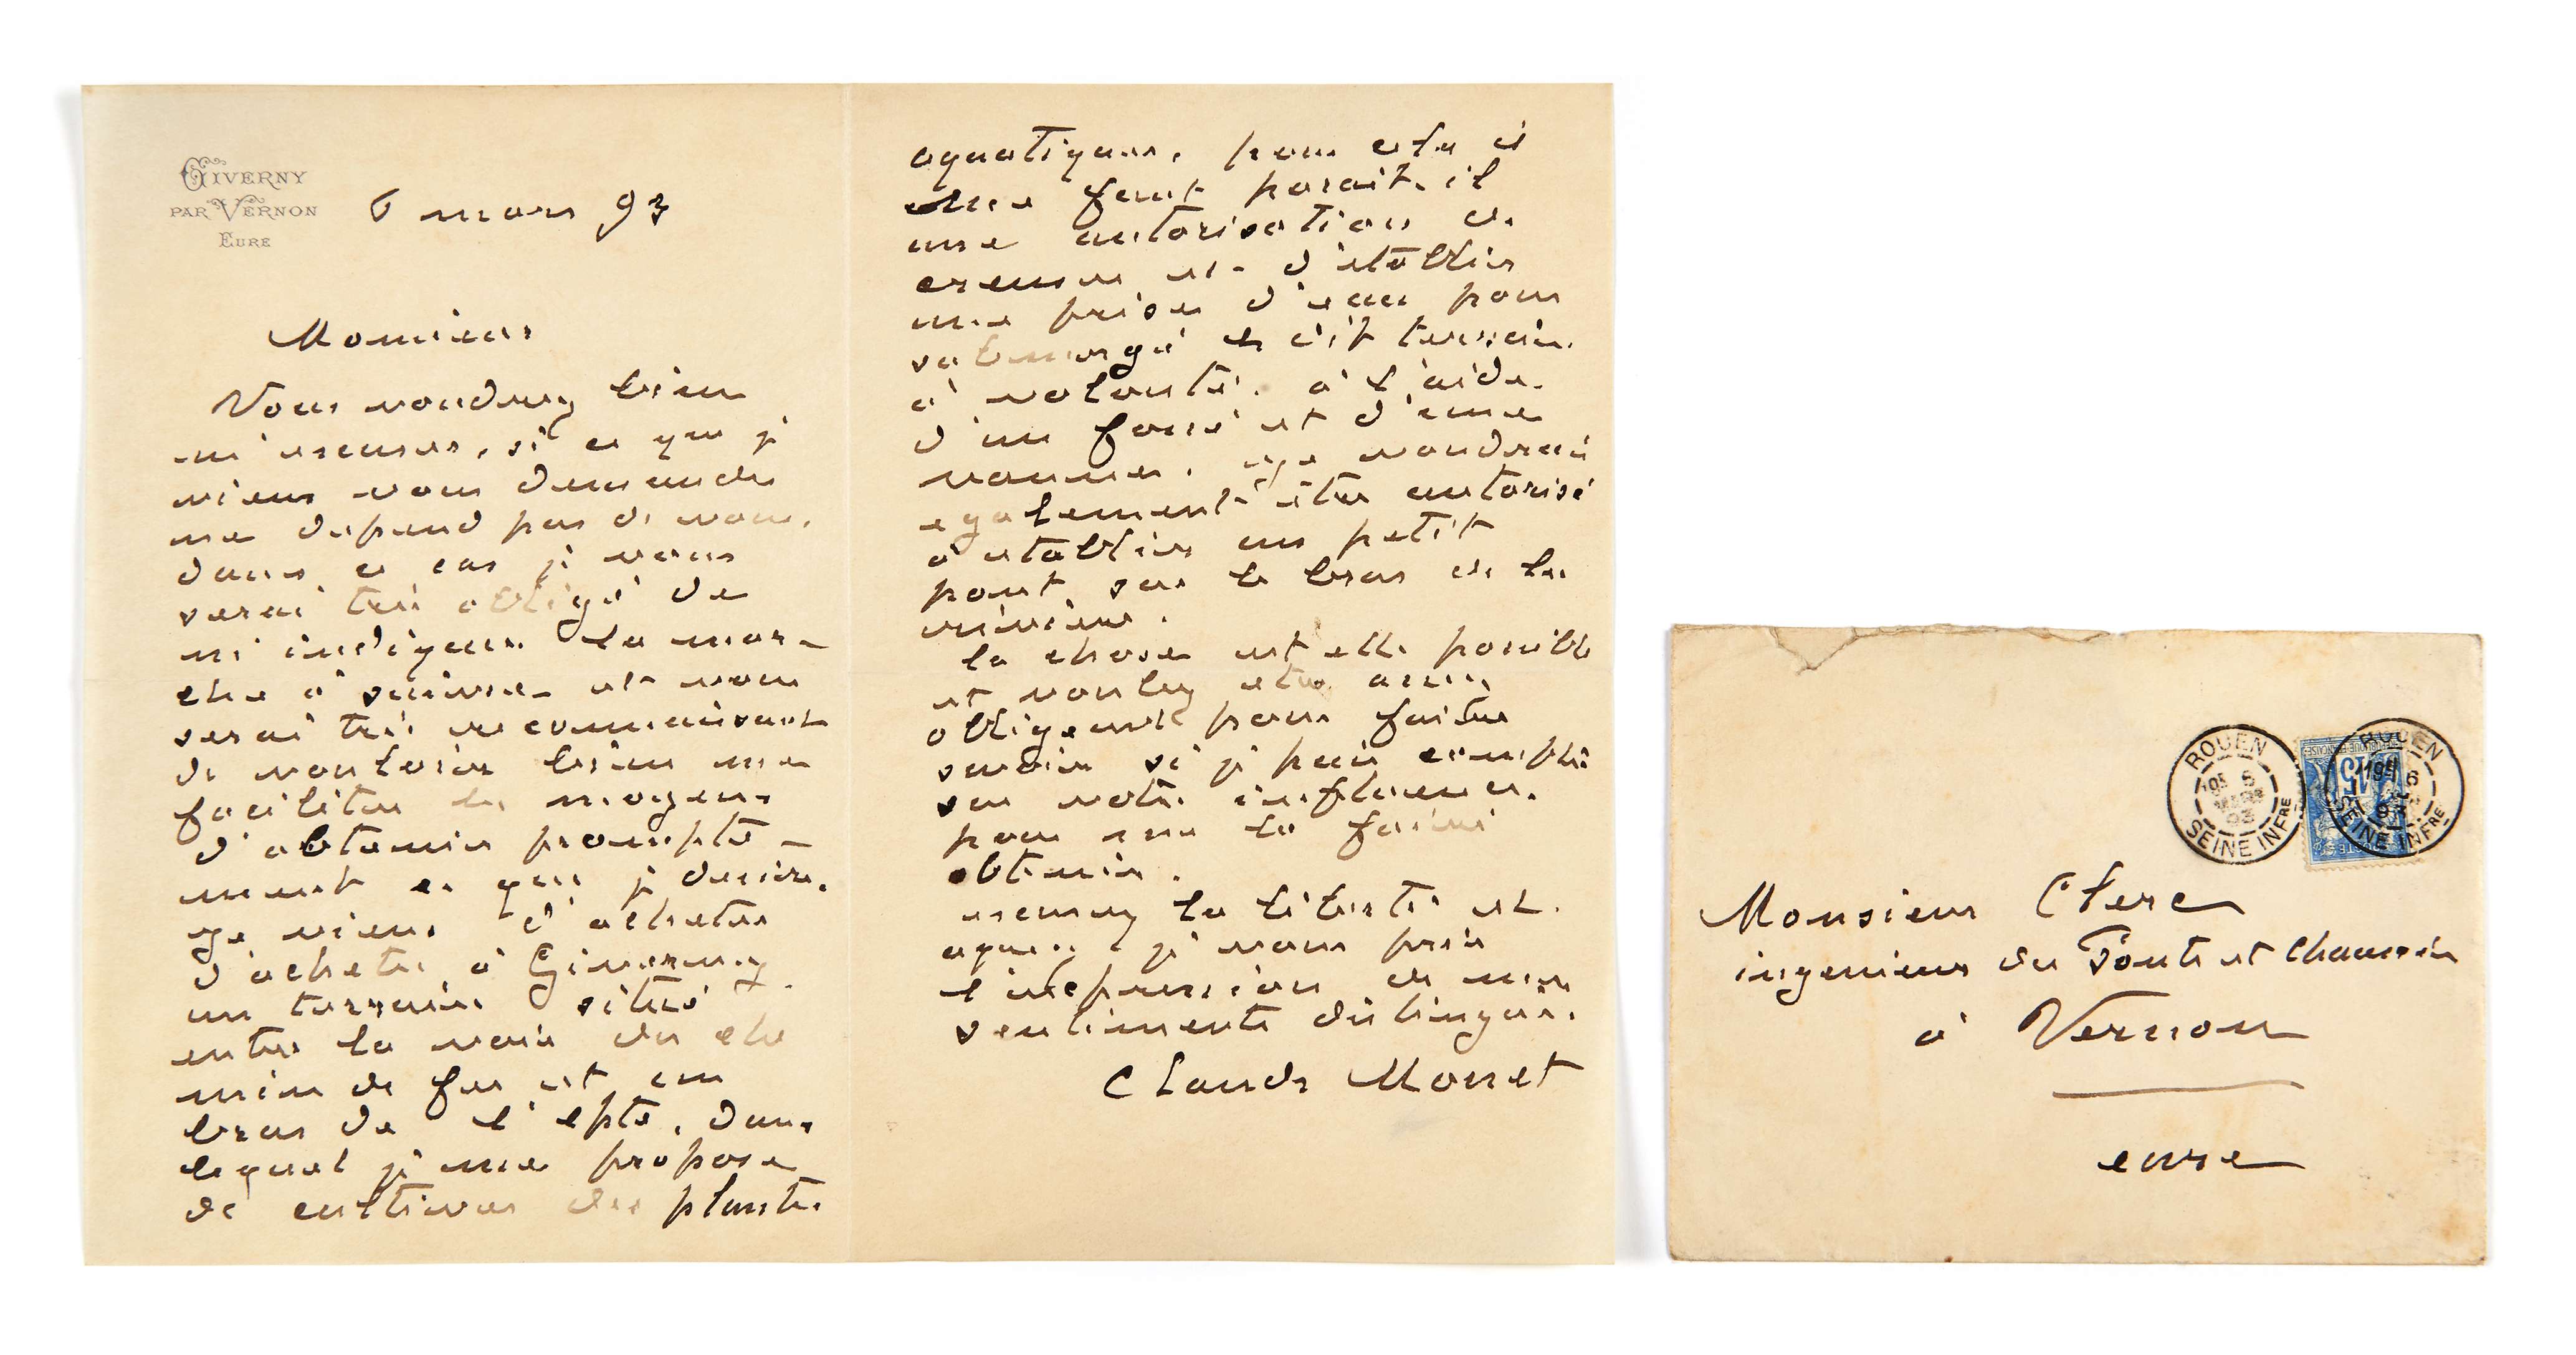 GIVERNY
PAR VERNON
EURE
6 mars 93
Monsieur
Vous voudrez bien
m'excuser, si ce que je
viens vous demander
ne depend pas de vous,
dans ce cas je vous
serai très obligé de
m'indiquer la mar-
che à suivre et vous
serai très reconnaissant
de vouloir bien me
faciliter les moyens
d'obtenir prompte-
ment ce que je desire.
je viens d'acheter
d'acheter à Giverny
un terrain situé
entre la voie du che
min de fer et un
bras de l'epte, dans
lequel je me propose
de cultiver des plantes
aquatiques. pour cela il
me faut parait-il
une autorisation de
creuser et d'établir
une prise d'eau pour
submergé le dit terrain
à volonté. à l'aide
d'un fossé et d'une
vanne. je voudrais
egalement être autorisé
a etablir un petit
pont sur le bras de la
rivière.
la chose est elle possible
et voulez etre assez
obligeant pour faire
savoir si je puis compter
sur votre influence
pour me le faire
obtenir.
excusez la liberté et
agréez je vous prie
l'expression de mes
sentiments distingués.
Claude Monet
ROUEN
6
93
SEINE INFRE
ROUEN
6
93
SEINE INFRE
15
Monsieur Clerc
ingenieur des Ponts et Chaussées
à Vernon
eure